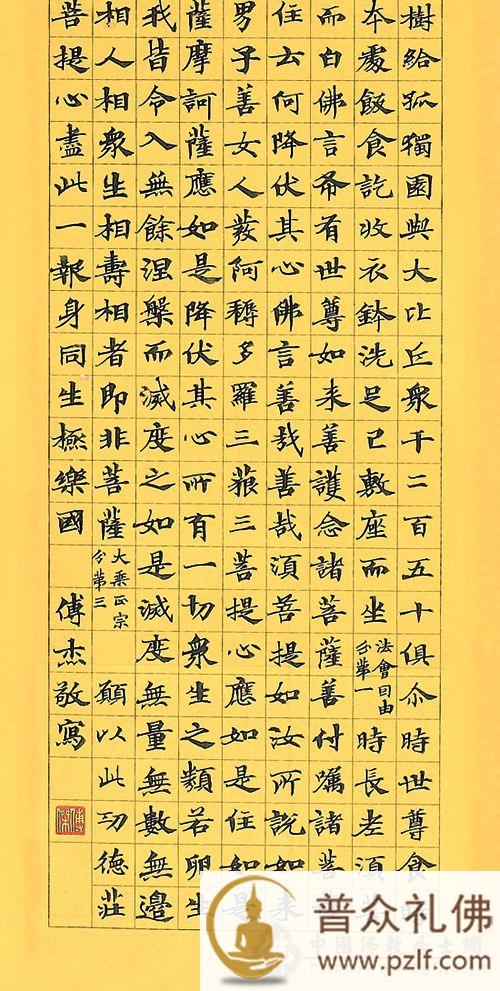 樹給孤獨園與大比丘衆千二百五十俱尒時世尊食
本處飯食訖收衣鉢洗足已敷座而坐
法會因由
分第一
時長老須
而白佛言希有世尊如来善護念諸菩薩善付嘱諸菩
住云何降伏其心佛言善哉善哉須菩提如汝所說如来
男子善女人發阿耨多羅三藐三菩提心應如是住如是
薩摩訶薩應如是降伏其心所有一切衆生之類若卵生
我皆令入無餘涅槃而滅度之如是滅度無量無數無邊
相人相衆生相壽相者即非菩薩
大乘正宗
分第三
願以此功德莊
菩提心盡此一報身同生極樂國
傅杰敬寫
普众礼佛
www.pzlf.com